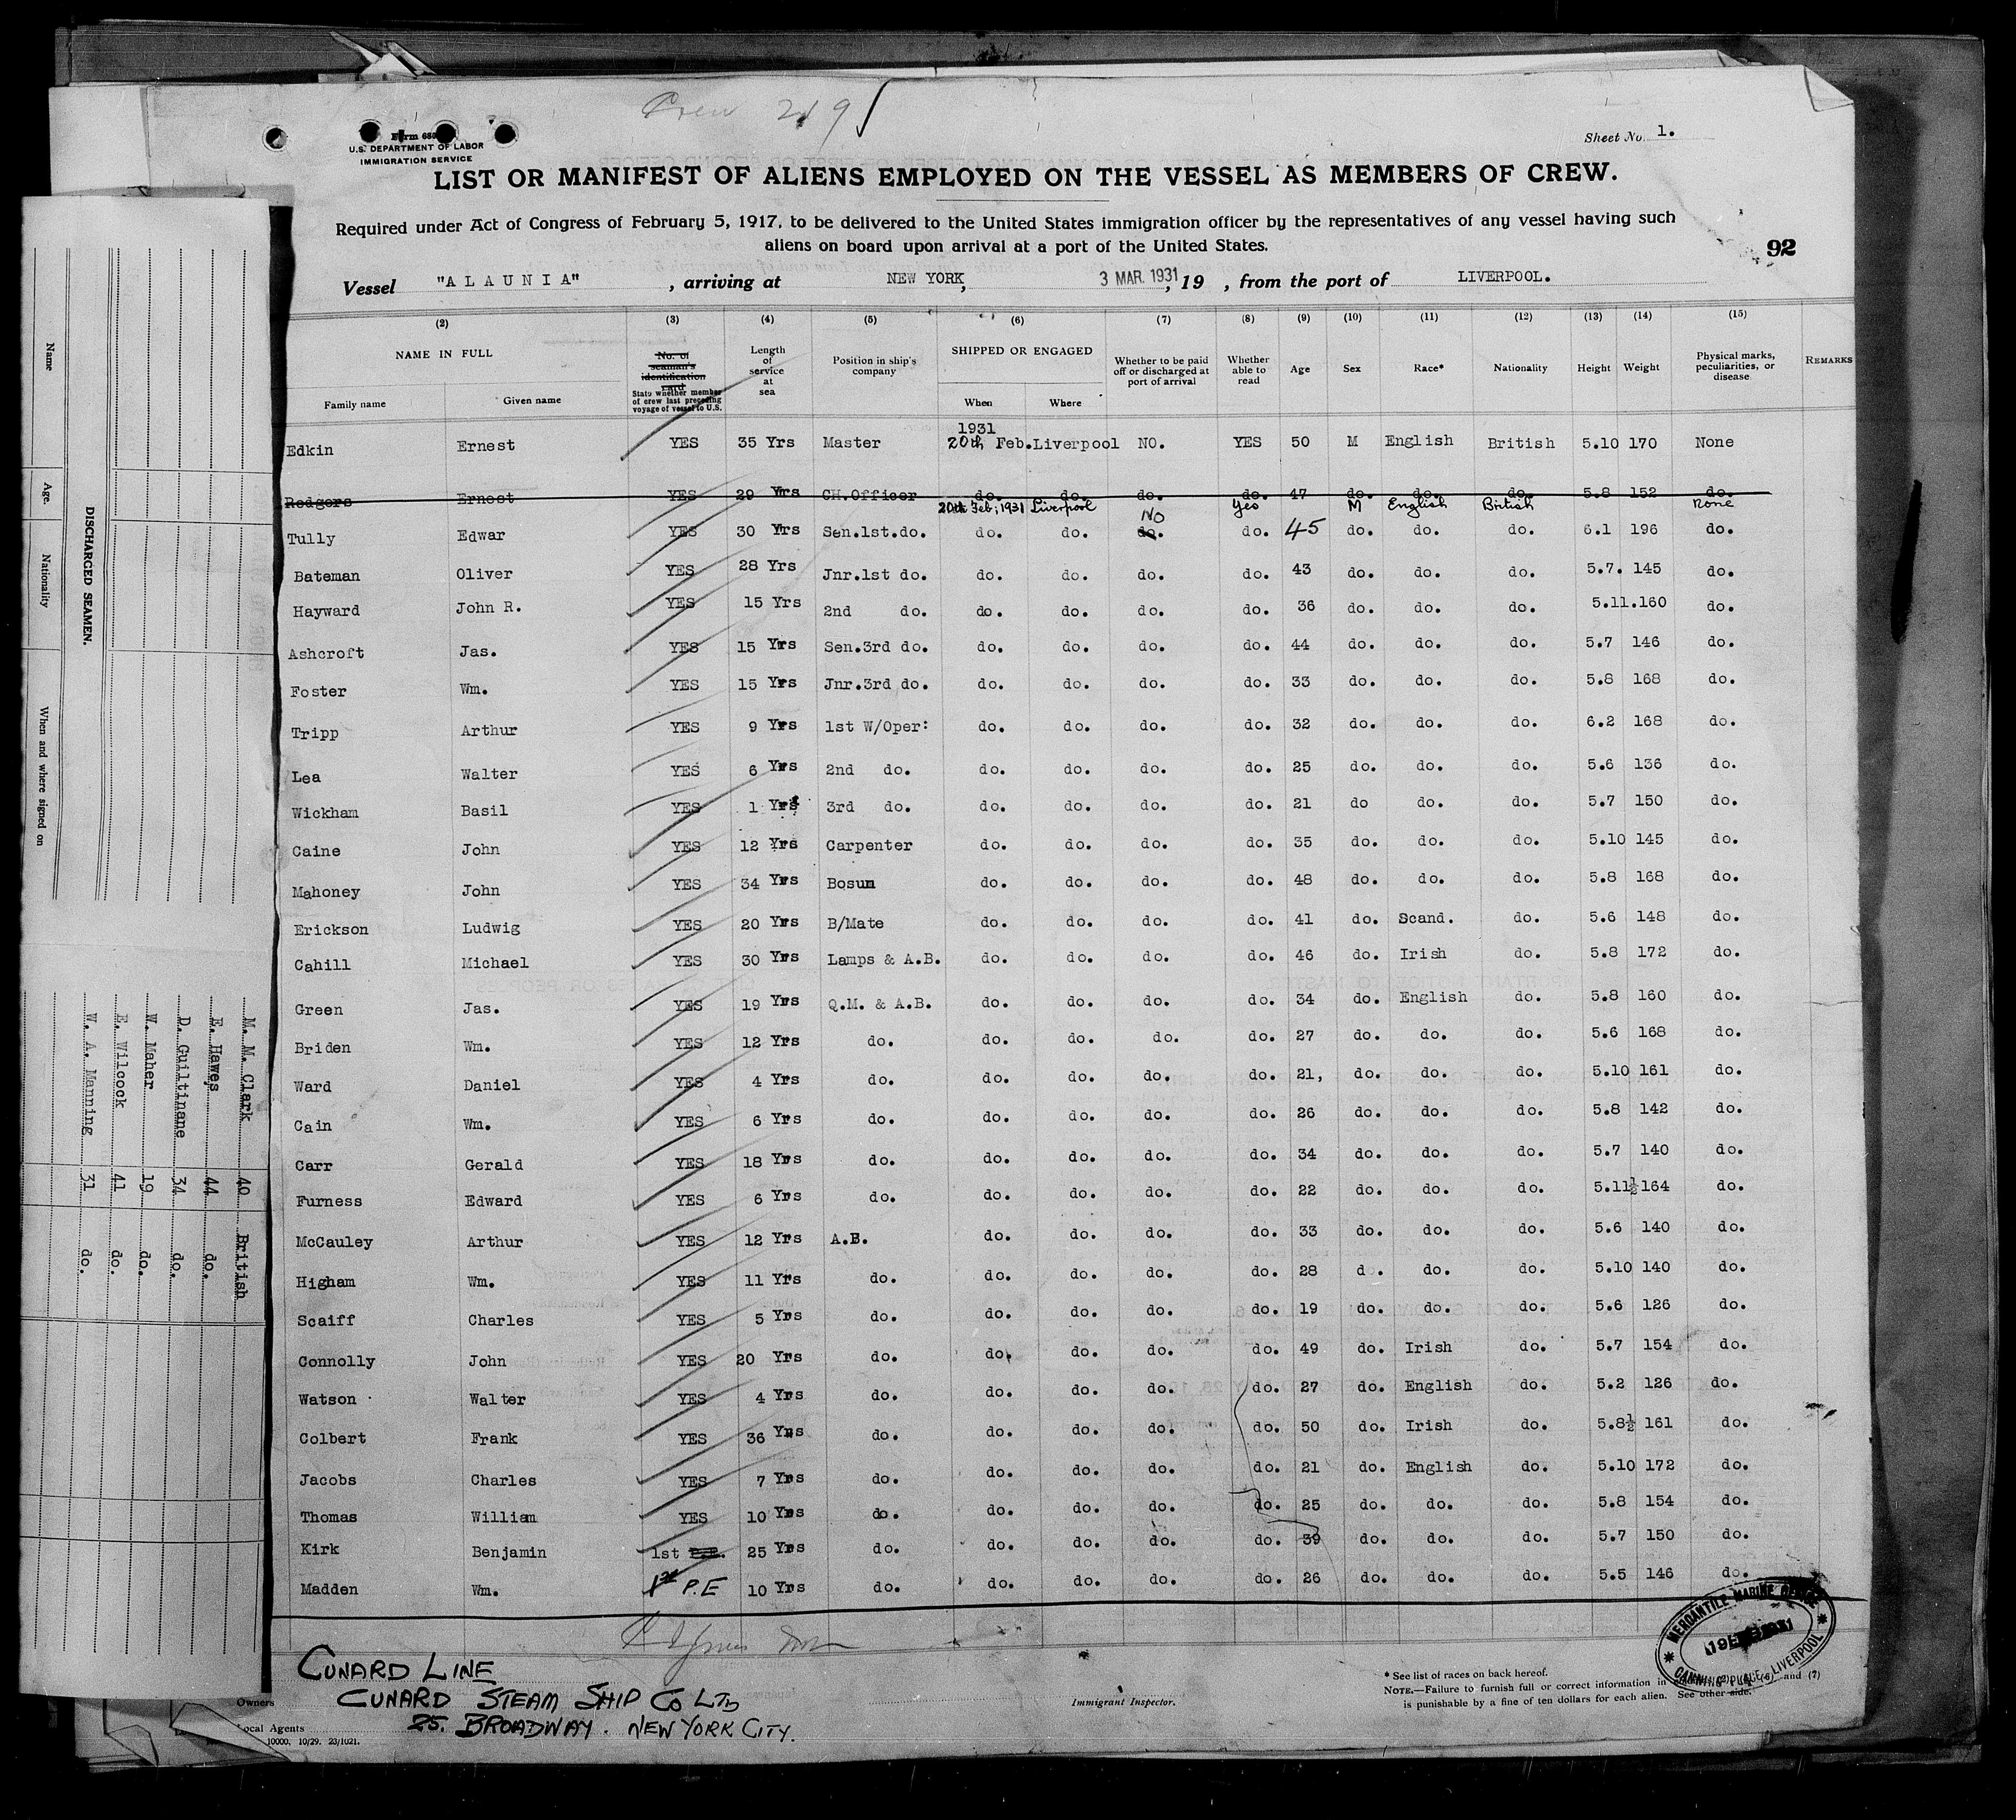 Crew 219
Form 680
U.S. DEPARTMENT OF LABOR
IMMIGRATION SERVICE
Sheet No. 1.
LIST OR MANIFEST OF ALIENS EMPLOYED ON THE VESSEL AS MEMBERS OF CREW.
Required under Act of Congress of February 5, 1917, to be delivered to the United States immigration officer by the representatives of any vessel having such
aliens on board upon arrival at a port of the United States.
92
Vessel "ALAUNIA", arriving at NEW YORK, 3 MAR. 1931, 19 , from the port of LIVERPOOL.
(2) (3) (4) (5) (6) (7) (8) (9) (10) (11) (12) (13) (14) (15)
NAME IN FULL
Family name Given name
No. of seaman's identification card
State whether member of crew last preceding voyage of vessel to U.S.
Length of service at sea
Position in ship's company
SHIPPED OR ENGAGED
When Where
Whether to be paid off or discharged at port of arrival
Whether able to read
Age Sex Race* Nationality Height Weight
Physical marks, peculiarities, or disease
REMARKS
1931
Edkin Ernest YES 35 Yrs Master 20th Feb. Liverpool NO. YES 50 M English British 5.10 170 None
Rodgers Ernest YES 29 Yrs CH.Officer do. do. do. do. 47 do. do. do. 5.8 152 do.
20th Feb; 1931 Liverpool No Yes M English British None
Tully Edwar YES 30 Yrs Sen.1st.do. do. do. do. do. 45 do. do. do. 6.1 196 do.
Bateman Oliver YES 28 Yrs Jnr.1st do. do. do. do. do. 43 do. do. do. 5.7. 145 do.
Hayward John R. YES 15 Yrs 2nd do. do. do. do. do. 36 do. do. do. 5.11.160 do.
Ashcroft Jas. YES 15 Yrs Sen.3rd do. do. do. do. do. 44 do. do. do. 5.7 146 do.
Foster Wm. YES 15 Yrs Jnr.3rd do. do. do. do. do. 33 do. do. do. 5.8 168 do.
Tripp Arthur YES 9 Yrs 1st W/Oper: do. do. do. do. 32 do. do. do. 6.2 168 do.
Lea Walter YES 6 Yrs 2nd do. do. do. do. do. 25 do. do. do. 5.6 136 do.
Wickham Basil YES 1 Yrs 3rd do. do. do. do. do. 21 do do. do. 5.7 150 do.
Caine John YES 12 Yrs Carpenter do. do. do. do. 35 do. do. do. 5.10 145 do.
Mahoney John YES 34 Yrs Bosun do. do. do. do. 48 do. do. do. 5.8 168 do.
Erickson Ludwig YES 20 Yrs B/Mate do. do. do. do. 41 do. Scand. do. 5.6 148 do.
Cahill Michael YES 30 Yrs Lamps & A.B. do. do. do. do. 46 do. Irish do. 5.8 172 do.
Green Jas. YES 19 Yrs Q.M. & A.B. do. do. do. do. 34 do. English do. 5.8 160 do.
Briden Wm. YES 12 Yrs do. do. do. do. do. 27 do. do. do. 5.6 168 do.
Ward Daniel YES 4 Yrs do. do. do. do. do. 21, do. do. do. 5.10 161 do.
Cain Wm. YES 6 Yrs do. do. do. do. do. 26 do. do. do. 5.8 142 do.
Carr Gerald YES 18 Yrs do. do. do. do. do. 34 do. do. do. 5.7 140 do.
Furness Edward YES 6 Yrs do. do. do. do. do. 22 do. do. do. 5.11½ 164 do.
McCauley Arthur YES 12 Yrs A.B. do. do. do. do. 33 do. do. do. 5.6 140 do.
Higham Wm. YES 11 Yrs do. do. do. do. do. 28 d . do. do. 5.10 140 do.
Scaiff Charles YES 5 Yrs do. do. do. do. do. 19 do. do. do. 5.6 126 do.
Connolly John YES 20 Yrs do. do. do. do. do. 49 do. Irish do. 5.7 154 do.
Watson Walter YES 4 Yrs do. do. do. do. do. 27 do. English do. 5.2 126 do.
Colbert Frank YES 36 Yrs do. do. do. do. do. 50 do. Irish do. 5.8½ 161 do.
Jacobs Charles YES 7 Yrs do. do. do. do. do. 21 do. English do. 5.10 172 do.
Thomas William YES 10 Yrs do. do. do. do. do. 25 do. do. do. 5.8 154 do.
Kirk Benjamin 1st P.E. 25 Yrs do. do. do. do. do. 39 do. do. do. 5.7 150 do.
Madden Wm. 1st P.E 10 Yrs do. do. do. do. do. 26 do. do. do. 5.5 146 do.
CUNARD LINE
Owners CUNARD STEAM SHIP CO LTD
Local Agents 25. BROADWAY. NEW YORK CITY.
10000. 10/29. 23/1021.
Immigrant Inspector.
* See list of races on back hereof.
NOTE.—Failure to furnish full or correct information in and (7)
is punishable by a fine of ten dollars for each alien. See other side.
MERCANTILE MARINE OFFICE
CANNING PLACE, LIVERPOOL
DISCHARGED SEAMEN.
Name Age. Nationality When and where signed on
M. M. Clark 40 British
E. Hawes 44 do.
D. Guiltinane 34 do.
W. Maher 19 do.
E. Wilcock 41 do.
W. A. Manning 31 do.